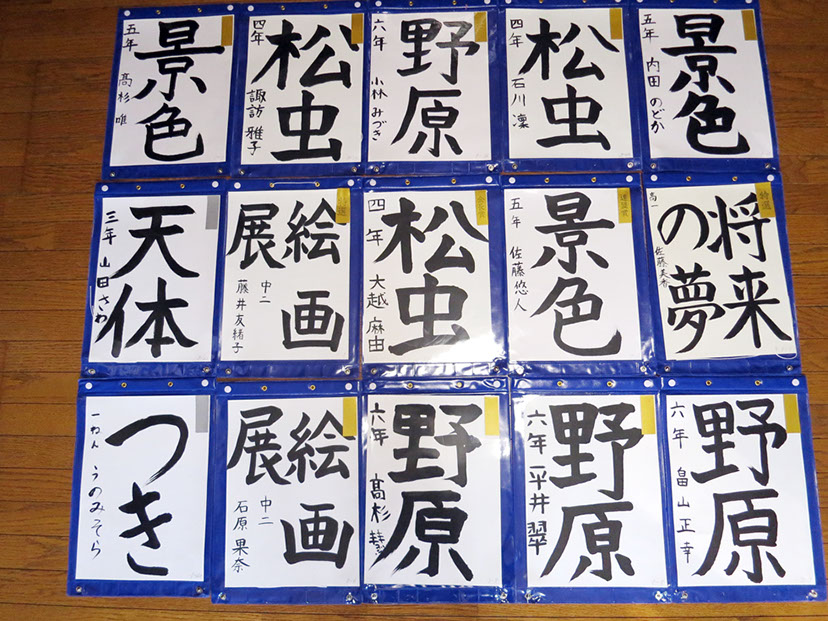 景色
五年 高杉 唯
松虫
四年 諏訪 雅子
野原
六年 小林 みづき
松虫
四年 石川 凜
景色
五年 内田 のどか
天体
三年 山田 さわ
絵画展
中二 藤井友緒子
松虫
四年 大越 麻由
景色
五年 佐藤悠人
特選
将来の夢
高一 佐藤美香
つき
一ねん うのみそら
絵画展
中二 石原 果奈
野原
六年 髙杉
野原
六年 平井 翠
野原
六年 畠山 正幸